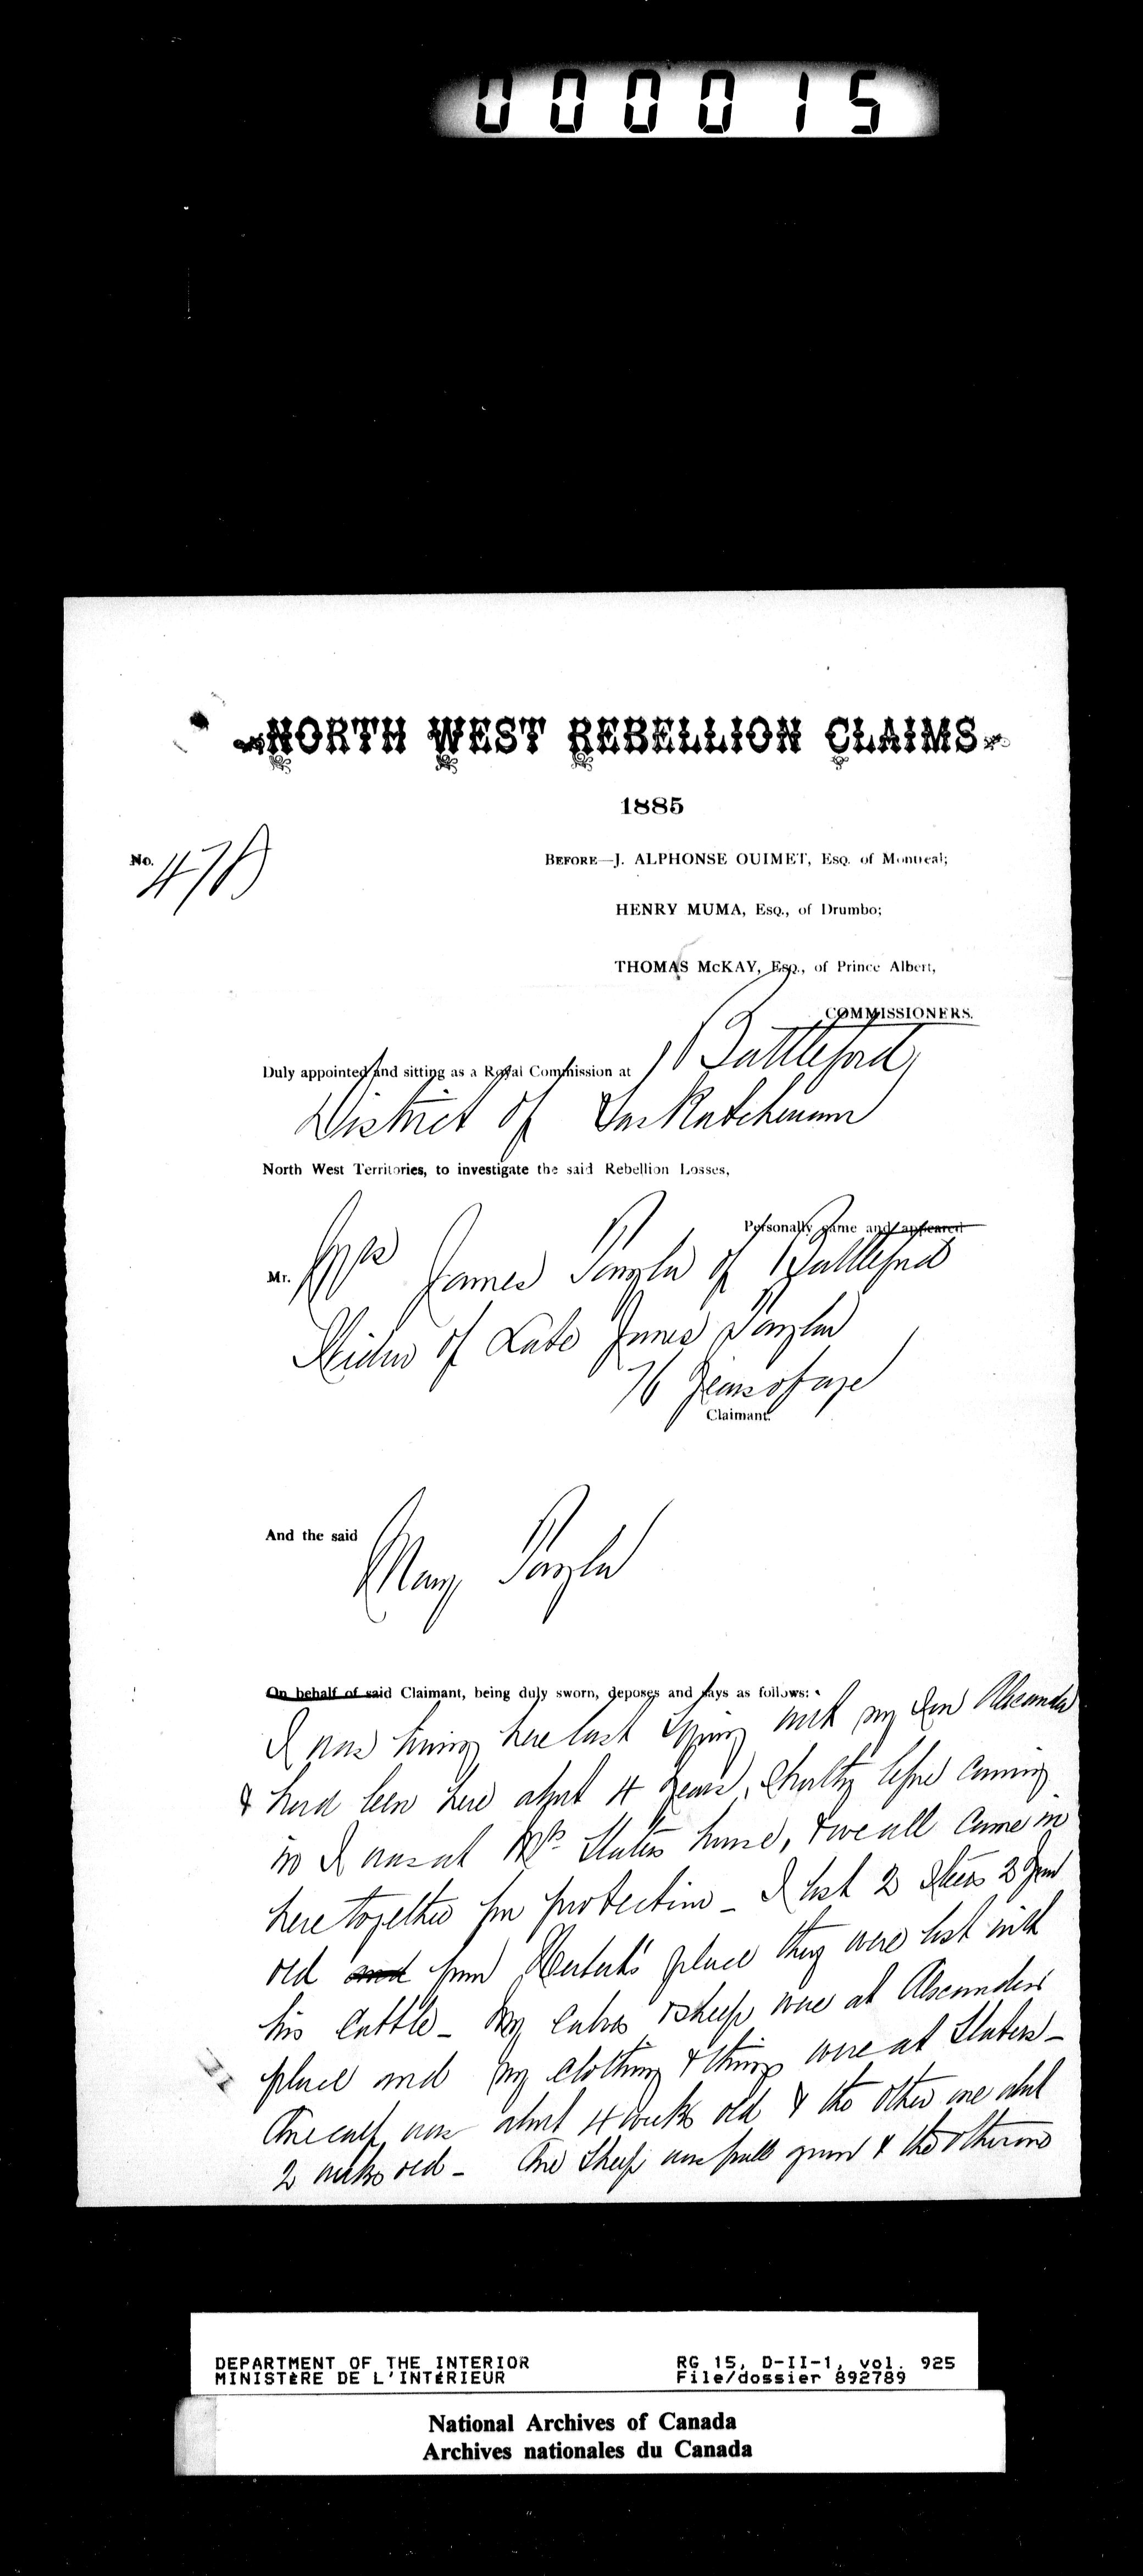 000015
NORTH WEST REBELLION CLAIMS
1885
No. 478
BEFORE—J. ALPHONSE OUIMET, Esq. of Montreal;
HENRY MUMA, Esq., of Drumbo;
THOMAS McKAY, Esq., of Prince Albert,
COMMISSIONERS.
Duly appointed and sitting as a Royal Commission at Battleford,
District of Saskatchewan
North West Territories, to investigate the said Rebellion Losses,
Personally came and appeared
Mr. Mrs James of Battleford
Widow of Late James
76 Years of age
Claimant.
And the said
Mary
On behalf of said Claimant, being duly sworn, deposes and says as follows:
I was living here last Spring with my Son Alexander
& had been here about 4 years, Shortly before coming
in I was at Mrs. Slaters house, & we all came in
here together for protection - I lost 2 Steers 2 year
old and from place they were lost with
his Cattle - My Calves & sheep were at Alexanders
place and my clothing & things were at Slaters -
One calf was about 4 weeks old & the other one about
2 weeks old - One Sheep was full grown & the other one
DEPARTMENT OF THE INTERIOR
MINISTÈRE DE L'INTÉRIEUR
RG 15, D-II-1, vol. 925
File/dossier 892789
National Archives of Canada
Archives nationales du Canada